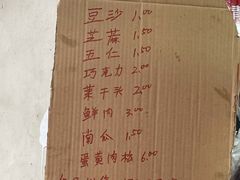 豆沙 1.00
芝蔴 1.50
五仁 1.50
巧克力 2.00
菓干头 2.00
鲜肉 3.00
南瓜 1.50
蛋黄肉松 6.00